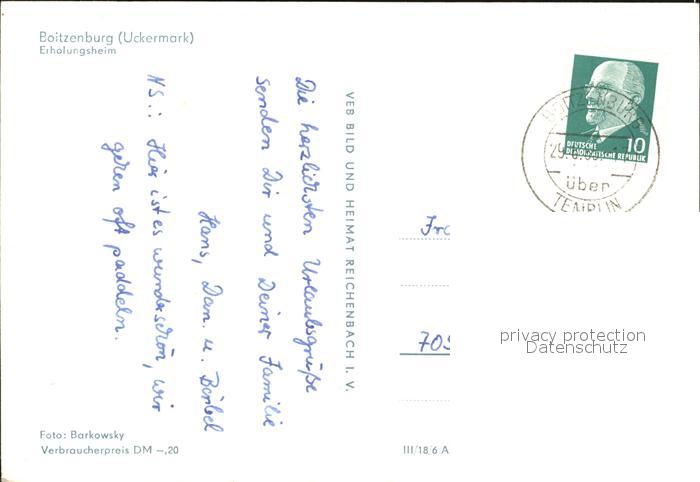 Boitzenburg (Uckermark)
Erholungsheim
Die herzlichsten Urlaubsgrüße
senden Dir und Deiner Familie
Hans, Dan. u. Bärbel
NS.: Hier ist es wunderschön, wir
gehen oft paddeln.
VEB BILD UND HEIMAT REICHENBACH I. V.
10
DEUTSCHE
DEMOKRATISCHE REPUBLIK
BOITZENBURG
über
TEMPLIN
Fra
705
privacy protection
Datenschutz
Foto: Barkowsky
Verbraucherpreis DM –,20
III/18/6 A